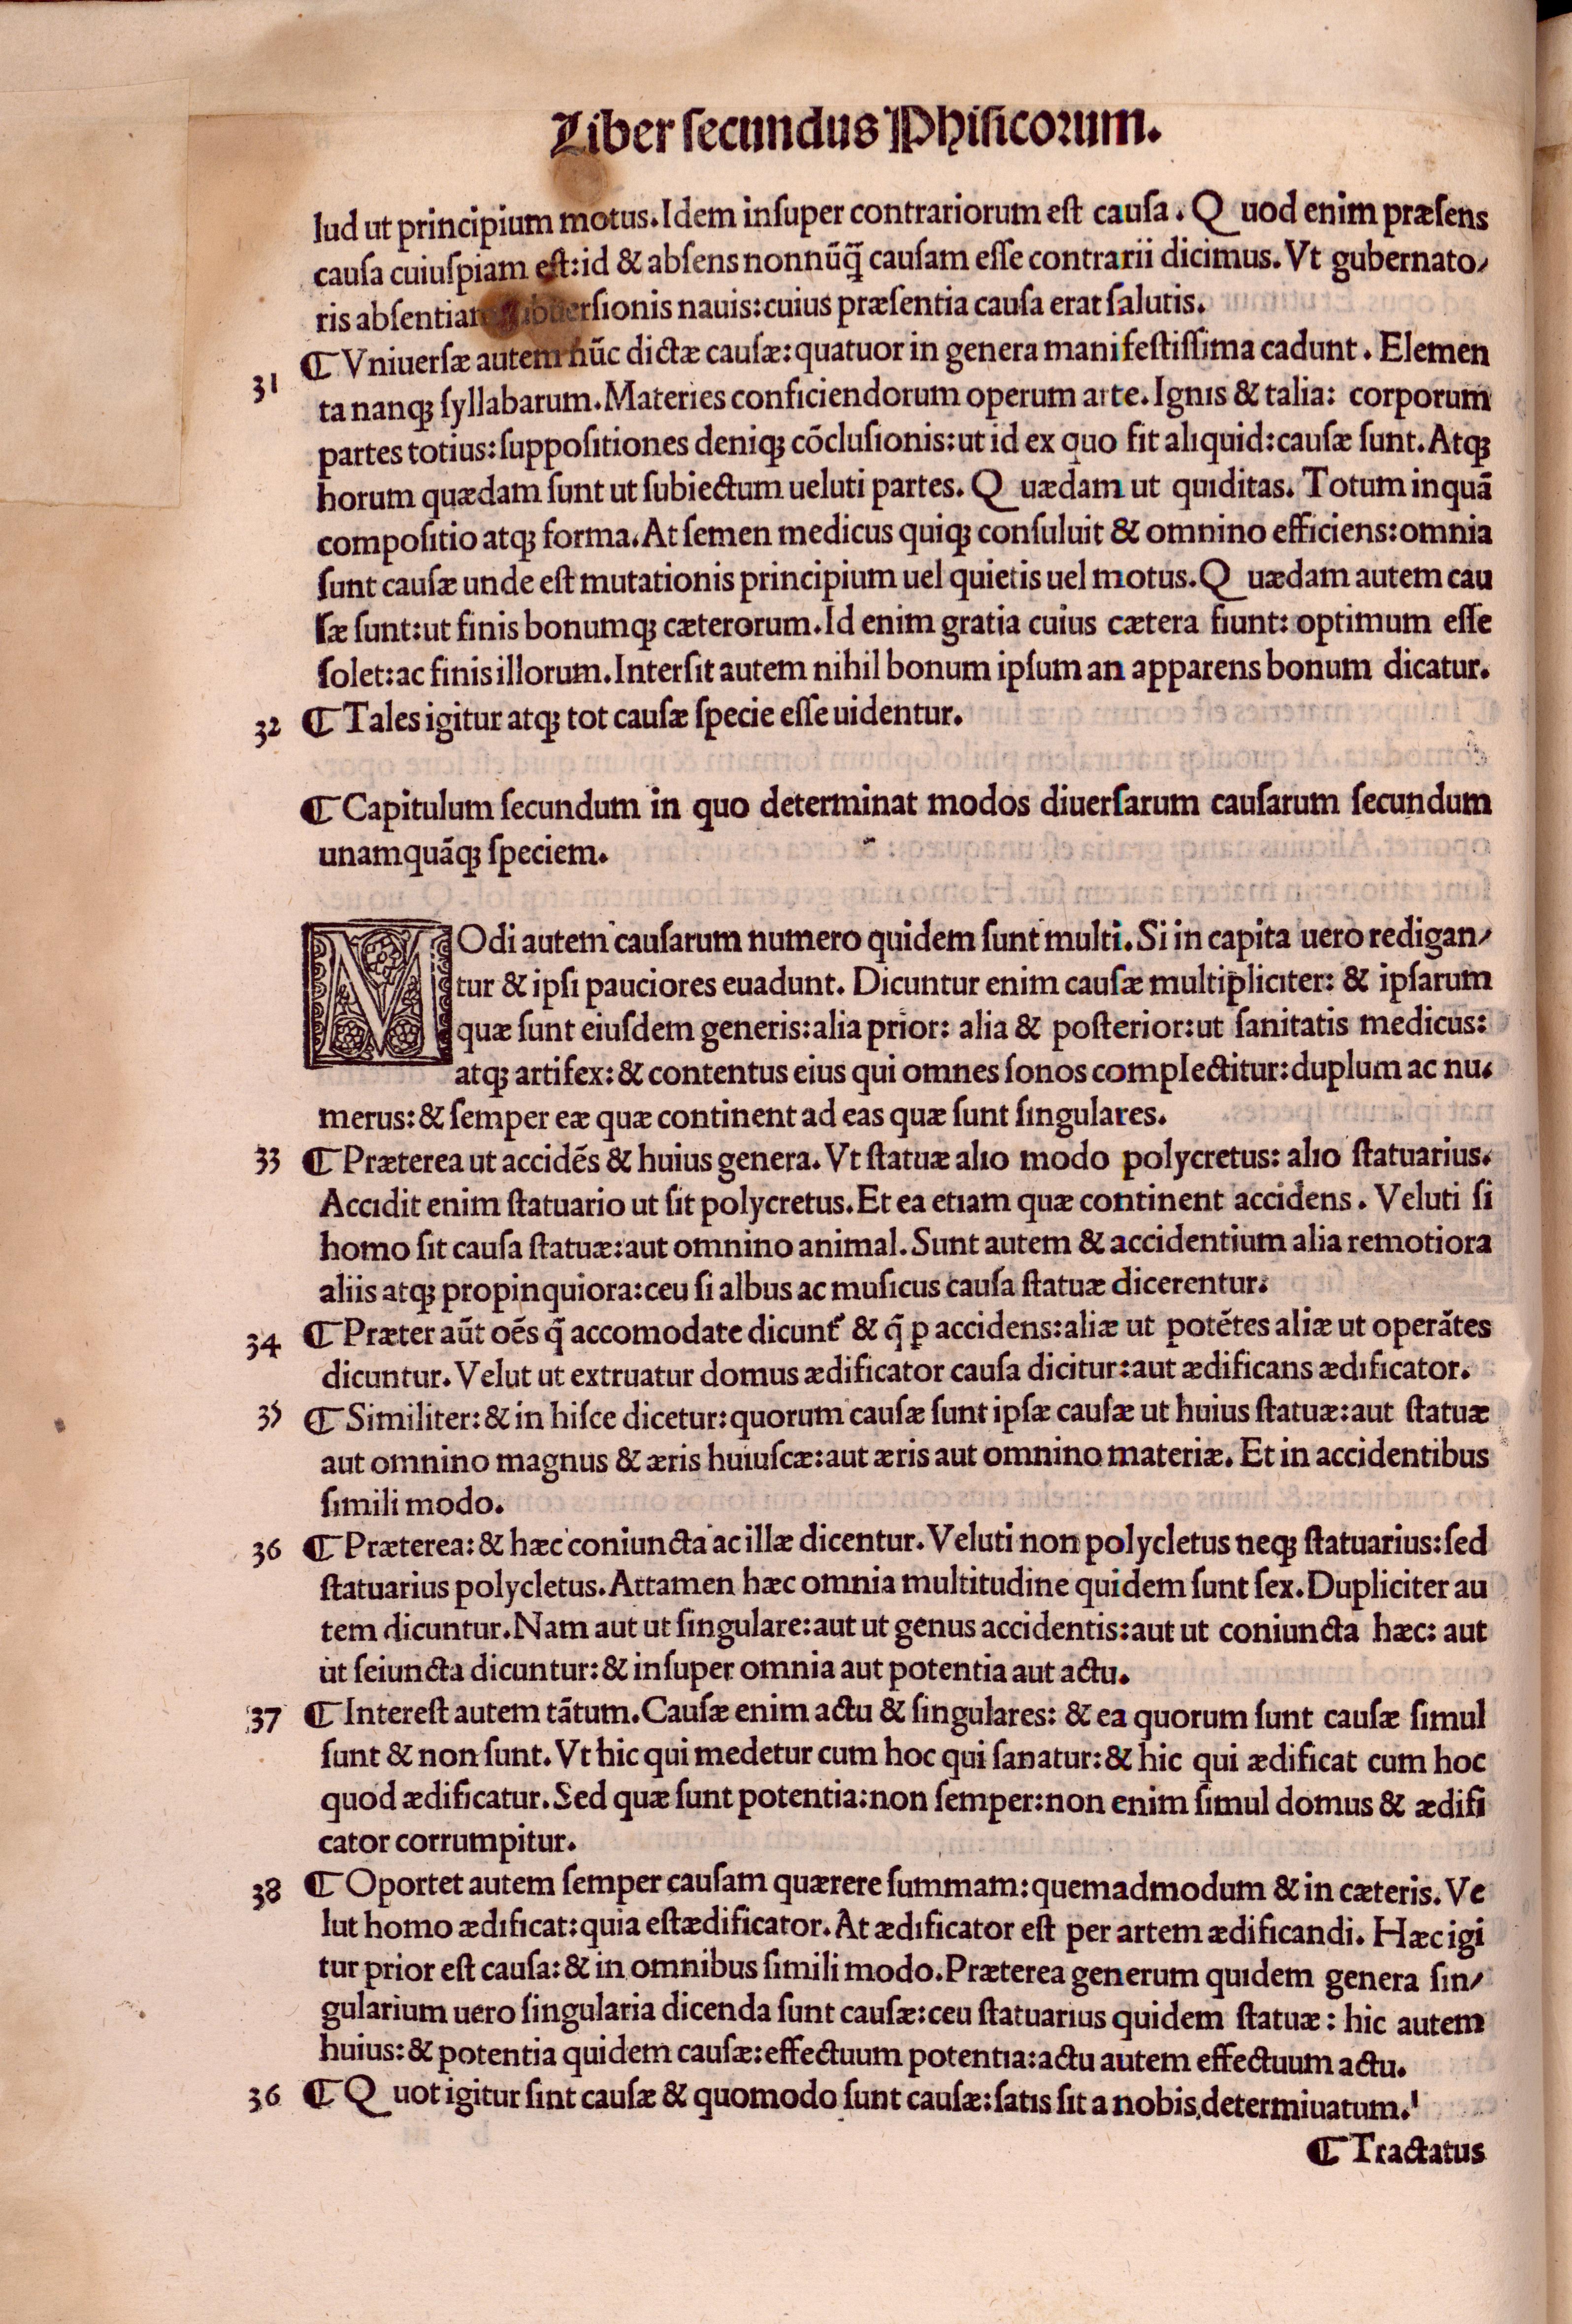 Liber secundus Phisicorum.
lud ut principium motus. Idem insuper contrariorum est causa. Quod enim præsens
causa cuiuspiam est: id & absens nonnūꝗ̄ causam esse contrarii dicimus. Vt gubernato/
ris absentiam sionis nauis: cuius præsentia causa erat salutis.
31 ¶ Vniuersæ autem nūc dictæ causæ: quatuor in genera manifestissima cadunt. Elemen
ta nanqꝫ syllabarum. Materies conficiendorum operum arte. Ignis & talia: corporum
partes totius: suppositiones deniqꝫ cōclusionis: ut id ex quo fit aliquid: causæ sunt. Atqꝫ
horum quædam sunt ut subiectum ueluti partes. Quædam ut quiditas. Totum inquā
compositio atqꝫ forma. At semen medicus quiqꝫ consuluit & omnino efficiens: omnia
sunt causæ unde est mutationis principium uel quietis uel motus. Quædam autem cau
sæ sunt: ut finis bonumqꝫ cæterorum. Id enim gratia cuius cætera fiunt: optimum esse
solet: ac finis illorum. Intersit autem nihil bonum ipsum an apparens bonum dicatur.
32 ¶ Tales igitur atqꝫ tot causæ specie esse uidentur.
¶ Capitulum secundum in quo determinat modos diuersarum causarum secundum
unamquāqꝫ speciem.
MOdi autem causarum numero quidem sunt multi. Si in capita uero redigan/
tur & ipsi pauciores euadunt. Dicuntur enim causæ multipliciter: & ipsarum
quæ sunt eiusdem generis: alia prior: alia & posterior: ut sanitatis medicus:
atqꝫ artifex: & contentus eius qui omnes sonos complectitur: duplum ac nu.
merus: & semper eæ quæ continent ad eas quæ sunt singulares.
33 ¶ Præterea ut accidēs & huius genera. Vt statuæ alio modo polycretus: alio statuarius.
Accidit enim statuario ut sit polycretus. Et ea etiam quæ continent accidens. Veluti si
homo sit causa statuæ: aut omnino animal. Sunt autem & accidentium alia remotiora
aliis atqꝫ propinquiora: ceu si albus ac musicus causa statuæ dicerentur.
34 ¶ Præter aūt oēs q̄ accomodate dicunt᷑ & q̄ ꝑ accidens: aliæ ut potētes aliæ ut operātes
dicuntur. Velut ut extruatur domus ædificator causa dicitur: aut ædificans ædificator.
35 ¶ Similiter: & in hisce dicetur: quorum causæ sunt ipsæ causæ ut huius statuæ: aut statuæ
aut omnino magnus & æris huiuscæ: aut æris aut omnino materiæ. Et in accidentibus
simili modo.
36 ¶ Præterea: & hæc coniuncta ac illæ dicentur. Veluti non polycletus neqꝫ statuarius: sed
statuarius polycletus. Attamen hæc omnia multitudine quidem sunt sex. Dupliciter au
tem dicuntur. Nam aut ut singulare: aut ut genus accidentis: aut ut coniuncta hæc: aut
ut seiuncta dicuntur: & insuper omnia aut potentia aut actu.
37 ¶ Interest autem tātum. Causæ enim actu & singulares: & ea quorum sunt causæ simul
sunt & non sunt. Vt hic qui medetur cum hoc qui sanatur: & hic qui ædificat cum hoc
quod ædificatur. Sed quæ sunt potentia: non semper: non enim simul domus & ædifi
cator corrumpitur.
38 ¶ Oportet autem semper causam quærere summam: quemadmodum & in cæteris. Ve
lut homo ædificat: quia est ædificator. At ædificator est per artem ædificandi. Hæc igi
tur prior est causa: & in omnibus simili modo. Præterea generum quidem genera sin/
gularium uero singularia dicenda sunt causæ: ceu statuarius quidem statuæ: hic autem
huius: & potentia quidem causæ: effectuum potentia: actu autem effectuum actu.
36 ¶ Quot igitur sint causæ & quomodo sunt causæ: satis sit a nobis determiuatum.
¶ Tractatus